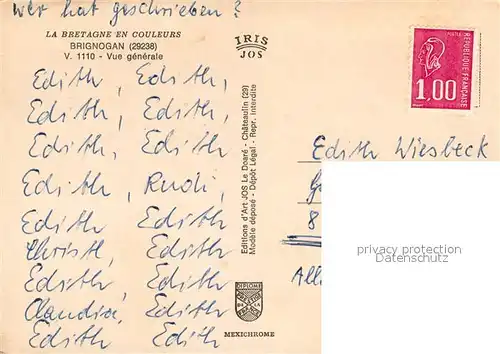 wer hat geschrieben?
LA BRETAGNE EN COULEURS
BRIGNOGAN (29238)
V. 1110 - Vue générale
IRIS
JOS
Edith, Edith,
Edith, Edith,
Edith, Edith
Edith, Rudi,
Edith Edith
Christl, Edith
Edith, Edith
Claudia, Edith
Edith Edith
Editions d'Art JOS Le Doaré - Châteaulin (29)
Modèle déposé - Dépôt Légal - Repr. Interdite
MEXICHROME
POSTES
REPUBLIQUE FRANÇAISE
1,00
Edith Wiesbeck
8
privacy protection
ansichtskarten-center.de